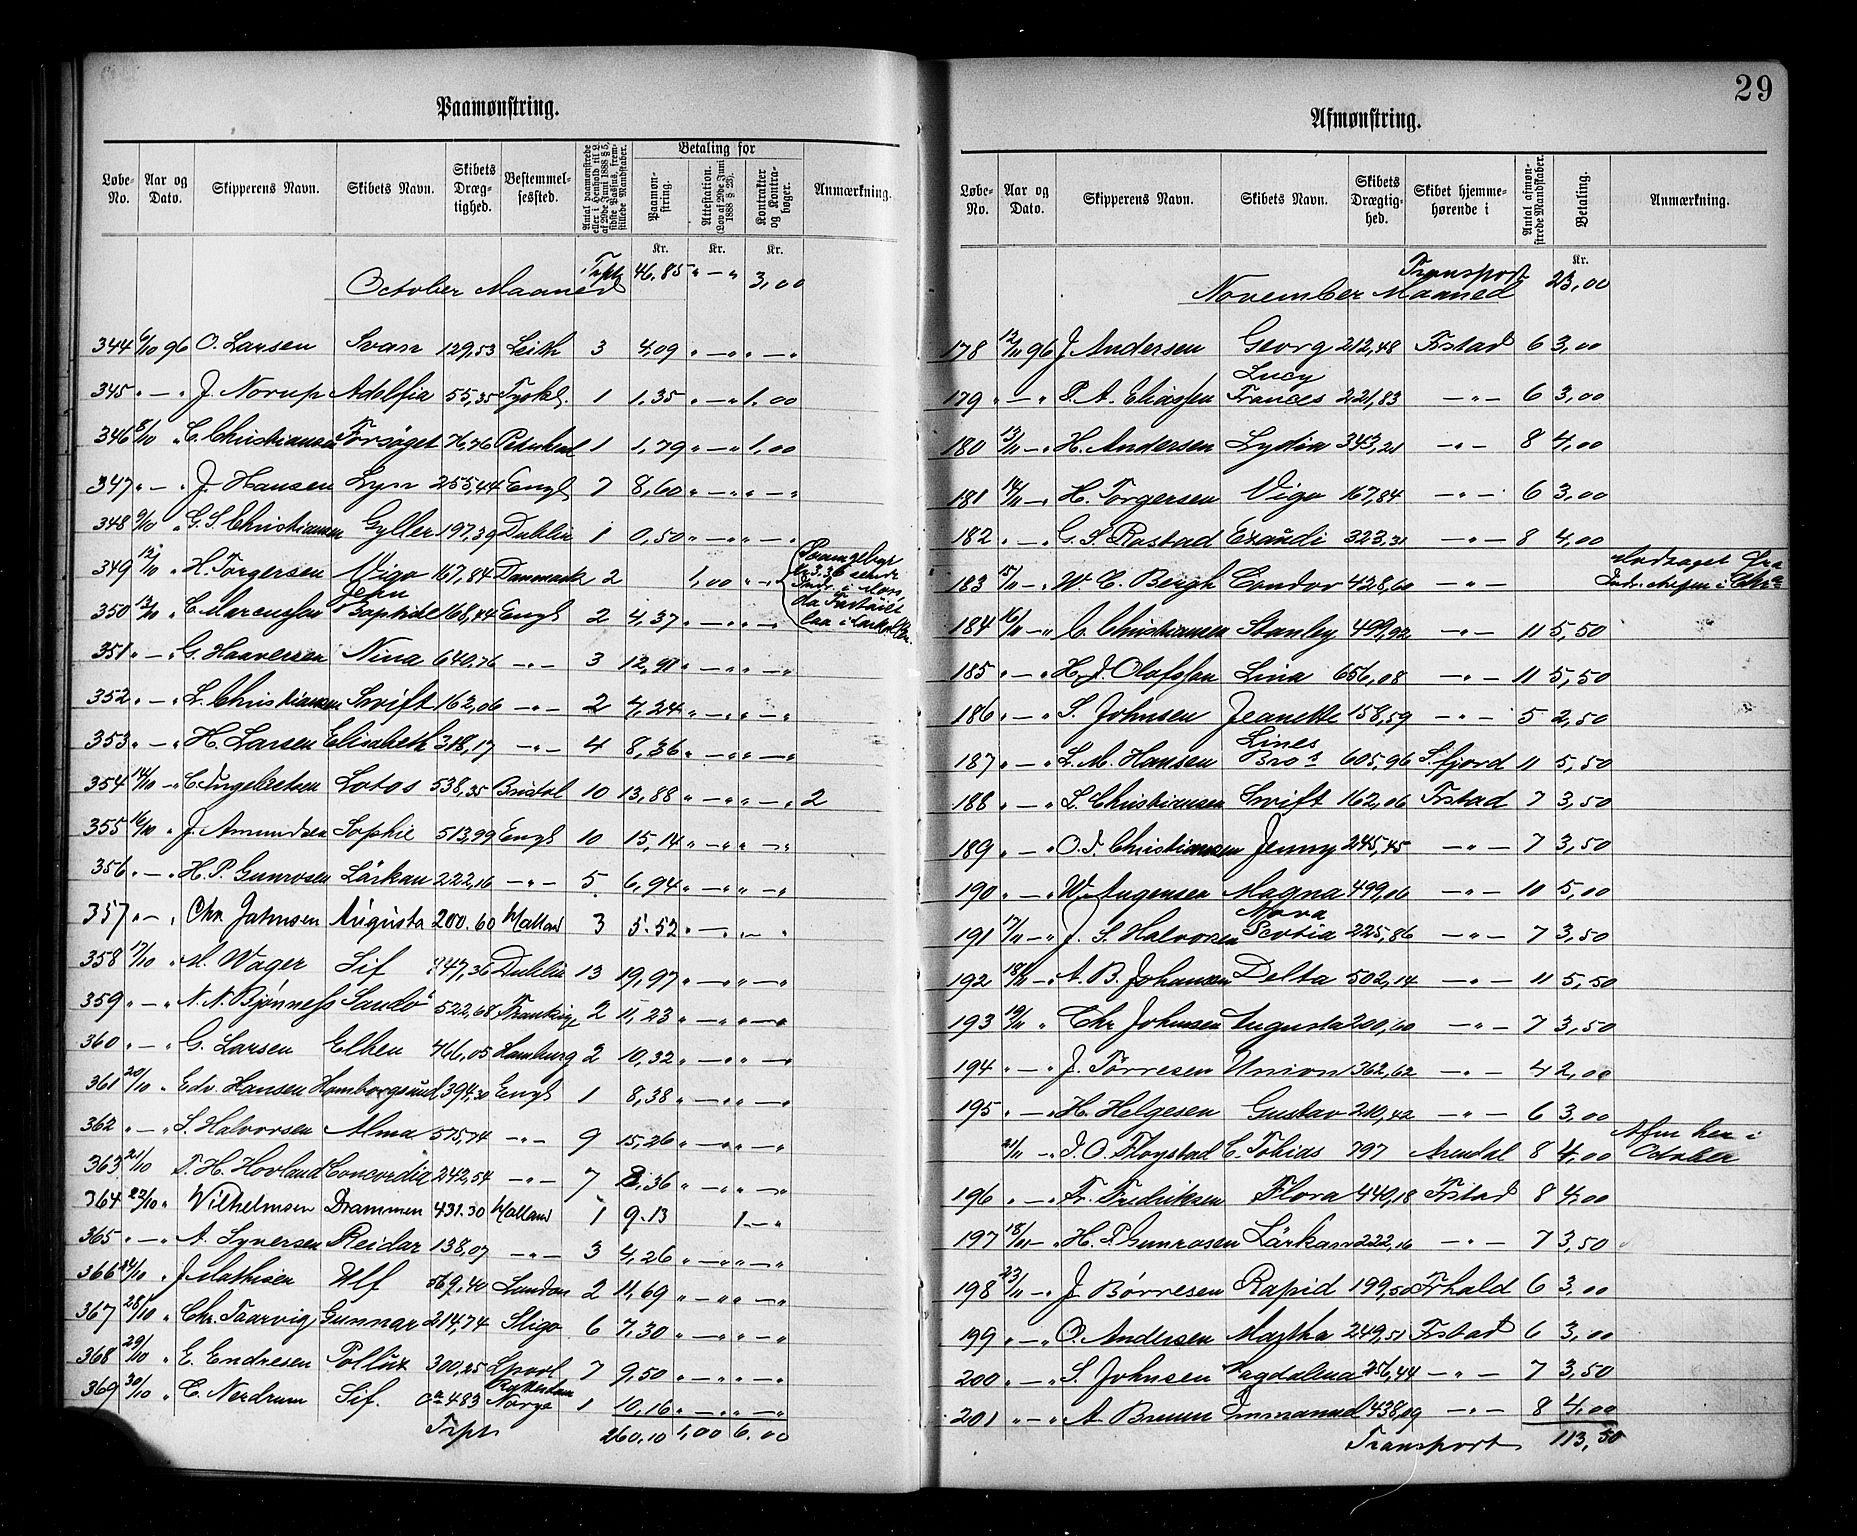 29
Paamønstring.
Løbe-No. Aar og Dato. Skipperens Navn. Skibets Navn. Skibets Dræg-tighed. Bestemmel-sessted. Antal paamønstrede eller i Henhold til L. af 29de Juni 1888 § 5, sidste Passus, frem-stillede Mandskaber. Betaling for Paamøn-string. Attestation. (Lov af 29de Juni 1888 § 23). Kontrakter og Kontra-bøger. Anmærkning.
Kr. Kr. Kr.
October Maaned Trpt. 46.85 " — " 3,00
344 6/10 96 O. Larsen Svan 129,53 Leith 3 4,09 " — " " — "
345 " — " J. Norup Adolfia 55,35 1 1.35 " — " 1.00
346 8/10 " C. Christiansen Forsøget 76,76 1 1,79 " — " 1,00
347 " — " J. Hansen Lyn 255,44 Engl 7 8,60 " — " " — "
348 9/10 " G. S. Christiansen Gyller 197,39 Dublin 1 0,50 " — " " — "
349 12/10 " H. Torgersen Vigo 167,84 Danmark 2 1,00 " — "
350 13/10 " C. Marcussen John Baptiste 168,44 Engl 2 4,37 " — " " — "
351 " — " G. Haaversen Nina 640,76 — " — 3 12,91 " — " " — "
352 " — " L. Christiansen Swift 162,06 — " — 2 4,24 " — " " — "
353 " — " H. Larsen Elisabeth 318,17 — " — 4 8,36 " — " " — "
354 14/10 — " C. Ingelbretsen Lotos 538,35 Bristol 10 13,88 " — " " — " 2
355 16/10 " J. Amundsen Sophie 513,99 Engl 10 15,14 " — " " — "
356 " — " H. P. Gunrosen Lärkan 222,16 — " — 5 6,94 " — " " — "
357 " — " Chr. Johnsen Augusta 200.60 Holland 3 5.52 " — " " — "
358 17/10 " M. Wager Sif 447,36 Dublin 13 19,97 " — " " — "
359 " — " N. N. Bjønness Sandö 522,68 Frankrige 2 11,23 " — " " — "
360 " — " G. Larsen Ellen 466,05 Hamburg 2 10,32 " — " " — "
361 20/10 " Edv. Hansen Hamborgsund 394,30 Engl 1 8,38 " — " " — "
362 " — " S. Halvorsen Alma 575,74 — " — 9 15,26 " — " " — "
363 21/10 T. H. Hovland Concordia 242,54 — " — 7 8,36 " — " " — "
364 22/10 " Wilhelmsen Drammen 431.30 Holland 1 9.13 1 — "
365 " — " A. Syversen Reidar 138,07 — " — 3 4,26 " — " " — "
366 24/10 " J. Mathisen Ulf 569,40 London 2 11,69 " — " " — "
367 28/10 " Chr. Taarvig Gunnar 214,74 Sligo 6 7,30 " — " " — "
368 29/10 " E. Endresen Pollux 300,25 Lpool 7 9,50 " — " " — "
369 30/10 " C. Nerdrum Sif. ca 483 Rotterdam Norge 1 10,16 " — " " — "
Trpt. 260,10 1,00 6.00
Afmønstring.
Løbe-No. Aar og Dato. Skipperens Navn. Skibets Navn. Skibets Drægtig-hed. Skibet hjemme-hørende i Antal afmøn-strede Mandskaber. Betaling. Anmærkning.
Kr.
Transport 23,00
November Maaned
178 12/11 96 J. Andersen Georg 212,48 Frstad 6 3,00
179 " — " P. A. Eliassen Lucy Frances 221,83 — " — 6 3,00
180 13/11 — " H. Andersen Lydia 343,21 — " — 8 4,00
181 14/11 — " H. Torgersen Vigo 167,84 — " — 6 3,00
182 " — " G. S. Rostad Exaudi 323,31 — " — 8 4,00
183 15/11 — " W. C. Bergh Condor 428,60 — " —
184 16/11 — " C. Christiansen Stanley 499,92 — " — 11 5,50
185 " — " H. J. Olafssen Lina 656,08 — " — 11 5,50
186 " — " S. Johnsen Jeanette 158,59 — " — 5 2,50
187 " — " L. M. Hansen Lines Bros 605,96 S.fjord 11 5,50
188 " — " L. Christiansen Swift 162,06 Frstad 7 3,50
189 " — " O. J. Christiansen Jenny 245,45 — " — 7 3,50
190 " — " W. Jugensen Magna 499,06 — " — 10 5,00
191 17/11 — " J. S. Halvorsen Nova Scotia 225,86 — " — 7 3,50
192 18/11 — " A. B. Johansen Delta 502,14 — " — 11 5,50
193 19/11 " Chr. Johnsen Augusta 200,60 — " — 7 3,50
194 " — " J. Törresen Union 362,62 — " — 4 2,00
195 " — " H. Helgesen Gustav 210,42 — " — 6 3,00
21/11 — " J. O. Fløystad C. Tobias 797 Arendal 8 4,00 Afm her i October
196 " — " Fr. Fredriksen Flora 440,18 Frstad 8 4,00
197 18/11 — " H. P. Gunrosen Lärkan 222,16 — " — 7 3,50
198 23/11 — " J. Børresen Rapid 199,50 Frhald 6 3,00
199 " — " O. Andersen Martha 249,51 Frstad 6 3,00
200 " — " S. Johnsen Magdalena 256,44 — " — 7 3,50
201 " — " A. Bruun Immanuel 438,09 — " — 8 4,00
Transport 113,50